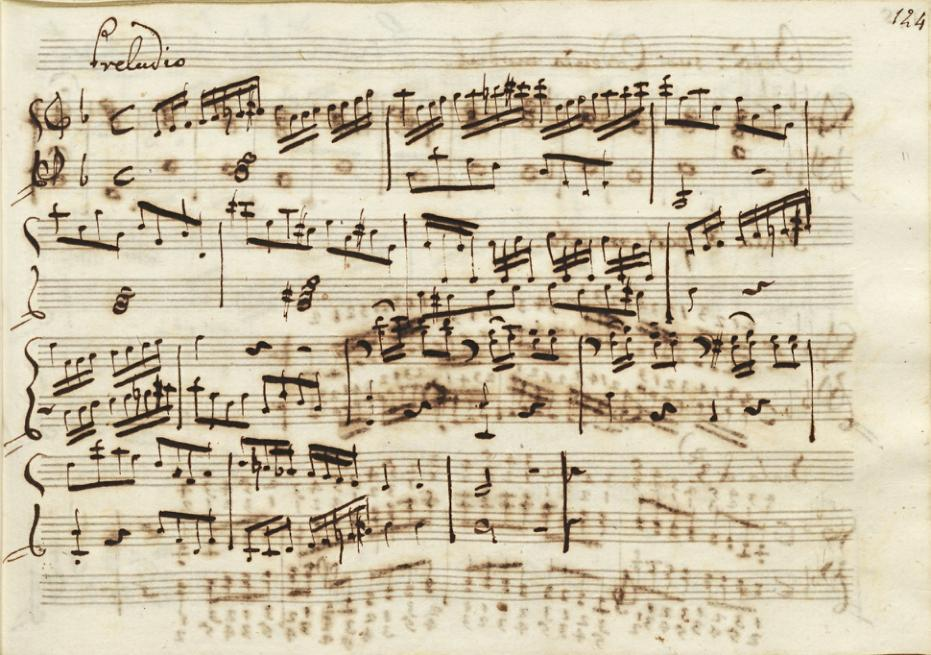 124
Preludio